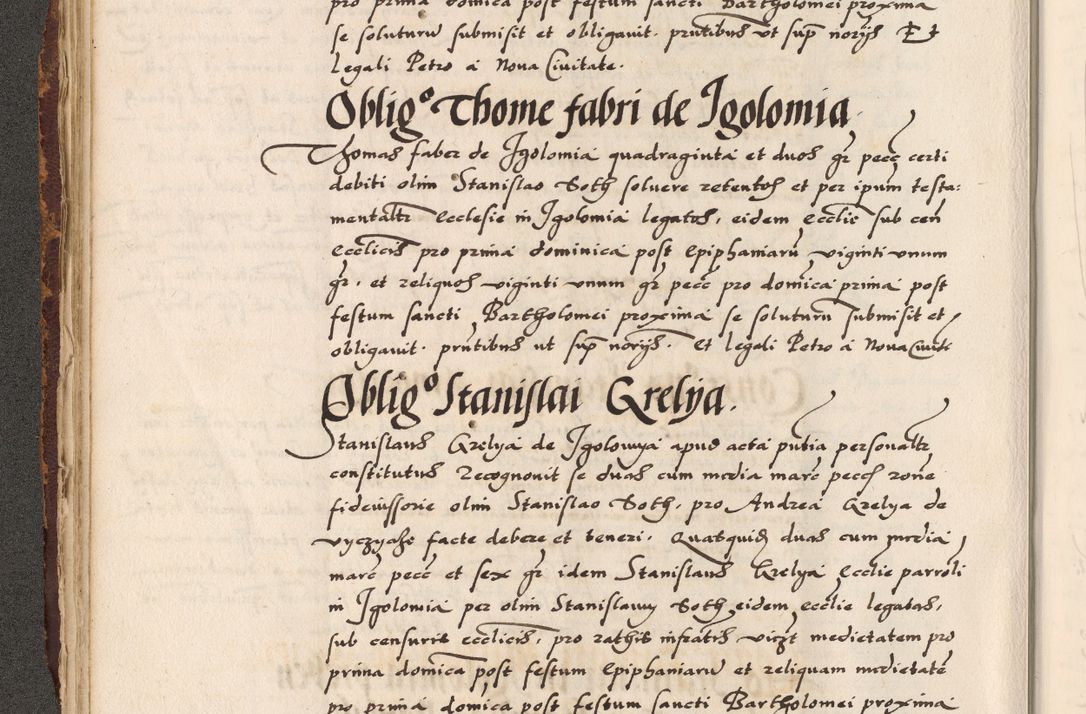 pro prima domica post festum sancti Bartholomei proxima
se soluturu submisit et obligauit. pntibus ut sup norijs Et
legali Petro a Noua Ciuitate.
Oblig° Thome fabri de Igolomia
Thomas faber de Igolomia quadraginta et duos gr pecc certi
debiti olim Stanislao Soth soluere retentos et per ipum testa:
mentaltr Ecclesie in Igolomia legatos, eidem ecclie sub cen
ecclicis pro prima dominica post Epiphaniaru viginti unum
gr. et reliquos viginti unum gr pecc pro domica prima post
festum sancti Bartholomei proxima se soluturu submisit et
obligauit. pntibus ut sup norijs. Et legali Petro a Noua Ciuite
Oblig° Stanislai Grelya.
Stanislaus Grelya de Igolomya apud acta publia personaltr
constitutus Recognouit se duas cum media marc pecc rone
fideiussorie olim Stanislao Soth, pro Andrea Grelya de
vyczyaze facte debere et teneri. Quasquid duas cum media
marc pecc et sex gr idem Stanislaus Grelya Ecclie parroli
in Igolomia per olim Stanislaum Soth eidem ecclie legatas,
sub censuris ecclicis, pro rathis infratis virgt medietatem pro
prima domica post festum Epiphaniaru et reliquam medietate
pro prima domica post festum sancti Bartholomei proxima